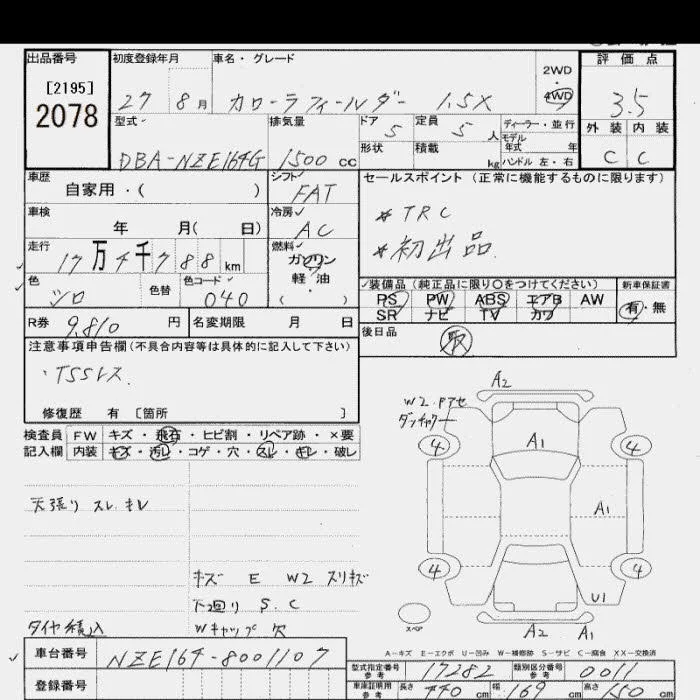 出品番号 初度登録年月 車名・グレード 2WD・4WD 評価点
[2195]
2078
27 8月 カローラフィールダー 1.5X 3.5
型式 排気量 ドア 5 定員 5人 ディーラー・並行 外装 内装
形状 積載 kg モデル年式 年 ハンドル 左・右
DBA-NZE164G 1500cc C C
車歴 自家用・( ) シフト FAT セールスポイント (正常に機能するものに限ります)
車検 年 月( 日) 冷房 AC ※TRC
※初出品
走行 17万4千788km 燃料 ガソリン 軽・油 ( )
色 シロ 色替 色コード 040 装備品 (純正品に限り○をつけてください) 新車保証書
PS PW ABS エアB AW 有・無
SR ナビ TV カワ
R券 9,810円 名変期限 月 日 後日品 取
注意事項申告欄(不具合内容等は具体的に記入して下さい)
・TSSレス.
修復歴 有 [箇所 ]
検査員 FW キズ・飛石・ヒビ割・リペア跡・×要
記入欄 内装 キズ・汚レ・コゲ・穴・スレ・キレ・破レ
天張り スレ.キレ
キズ E W2 スリキズ
下廻り S.C
タイヤ積込 Wキャップ 欠
A2
W2.Pアセ
4 A1 4
A1
4 4
U1
スペア A2 A1
A-キズ E-エクボ U-凹み W-補修跡 S-サビ C-腐食 XX-交換済
車台番号 NZE164-8001107
登録番号
型式指定番号 参考 17282 類別区分番号 参考 0011
車庫証明用 参考 長さ 440cm 幅 169cm 高さ 150cm